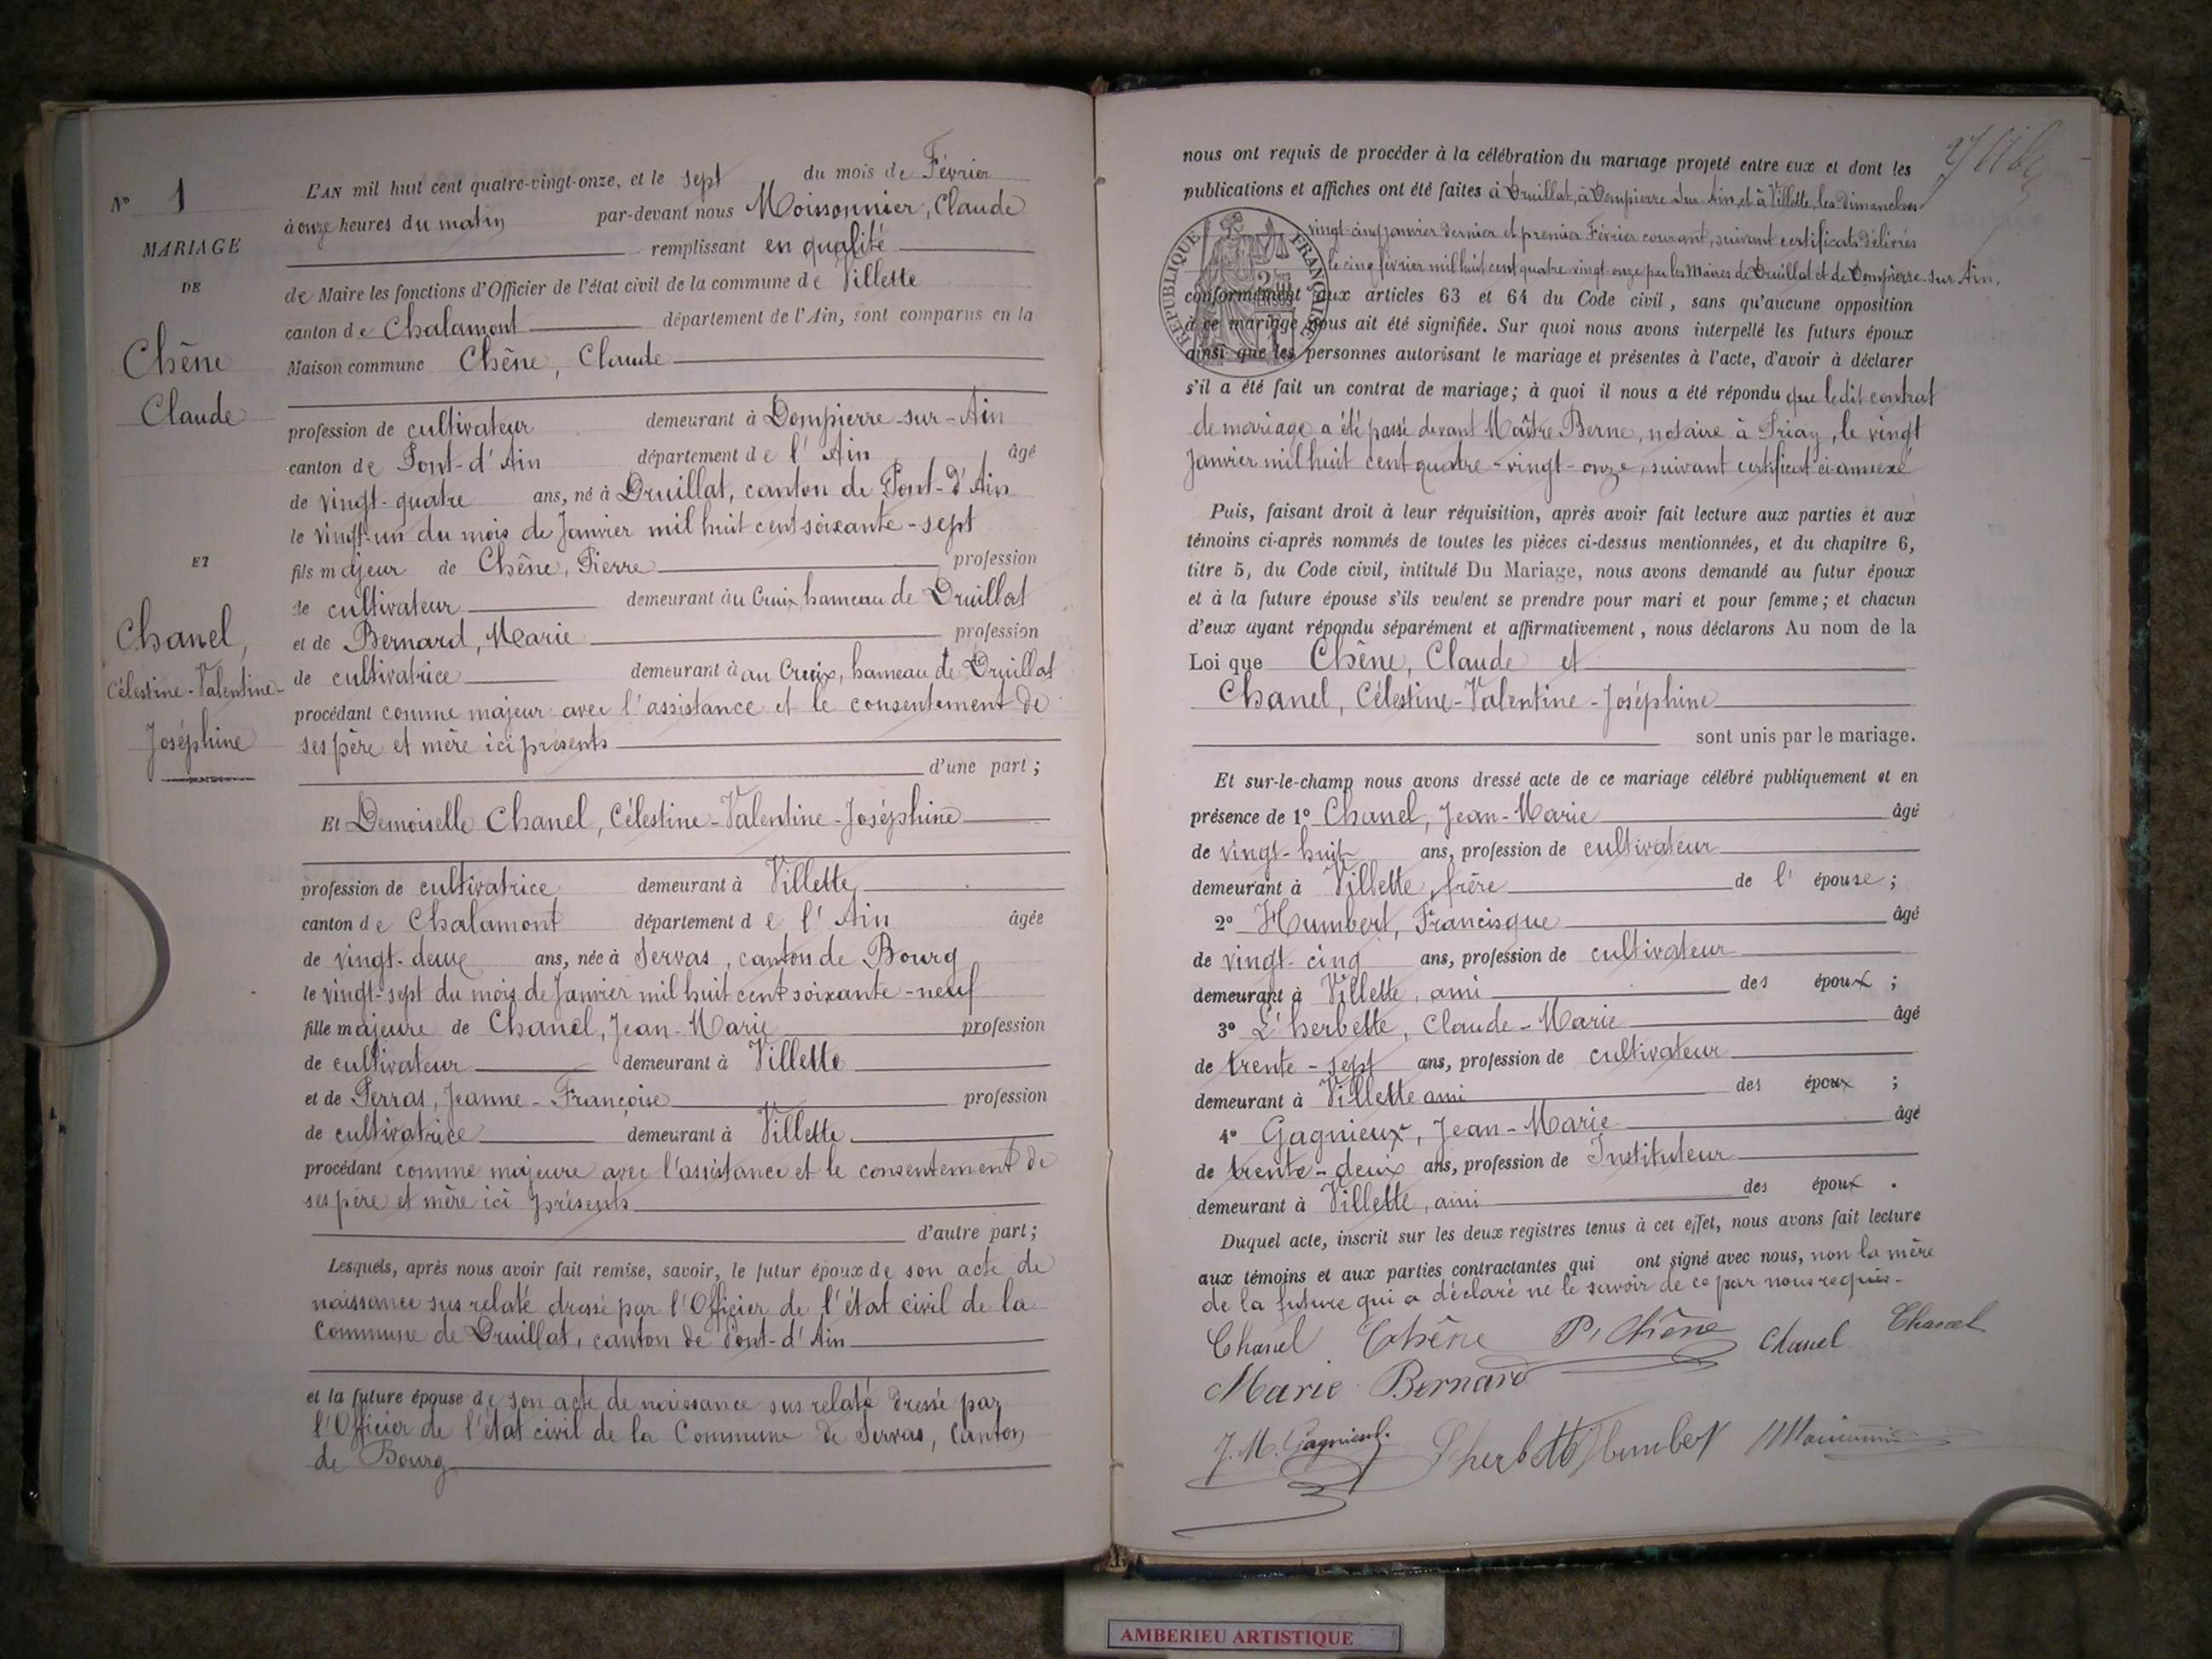 N° 1
MARIAGE
DE
Chêne
Claude
ET
Chanel,
Célestine-Valentine-
Joséphine
L'AN mil huit cent quatre-vingt-onze, et le sept du mois de Février
à onze heures du matin par-devant nous Moissonnier, Claude
remplissant en qualité
de Maire les fonctions d'Officier de l'état civil de la commune de Villette
canton de Chalamont département de l'Ain, sont comparus en la
Maison commune Chêne, Claude
profession de cultivateur demeurant à Dompierre-sur-Ain
canton de Pont-d'Ain département de l'Ain âgé
de vingt-quatre ans, né à Druillat, canton de Pont-d'Ain
le vingt-un du mois de Janvier mil huit cent soixante-sept
fils majeur de Chêne, Pierre profession
de cultivateur demeurant au Cruix, hameau de Druillat
et de Bernard, Marie profession
de cultivatrice demeurant à au Cruix, hameau de Druillat
procédant comme majeur avec l'assistance et le consentement de
ses père et mère ici présents
d'une part;
Et Demoiselle Chanel, Célestine-Valentine-Joséphine
profession de cultivatrice demeurant à Villette
canton de Chalamont département de l'Ain âgée
de vingt-deux ans, née à Servas, canton de Bourg
le vingt-sept du mois de Janvier mil huit cent soixante-neuf
fille majeure de Chanel, Jean-Marie profession
de cultivateur demeurant à Villette
et de Perras, Jeanne-Françoise profession
de cultivatrice demeurant à Villette
procédant comme majeure avec l'assistance et le consentement de
ses père et mère ici présents
d'autre part;
Lesquels, après nous avoir fait remise, savoir, le futur époux de son acte de
naissance sus relaté dressé par l'Officier de l'état civil de la
Commune de Druillat, canton de Pont-d'Ain
et la future épouse de son acte de naissance sus relaté dressé par
l'Officier de l'état civil de la Commune de Servas, Canton
de Bourg
nous ont requis de procéder à la célébration du mariage projeté entre eux et dont les
publications et affiches ont été faites à Druillat, à Dompierre sur Ain, et à Villette, les dimanches
vingt-cinq Janvier dernier et premier Février courant, suivant certificats délivrés
le cinq février mil huit cent quatre-vingt-onze par les Maires de Druillat et de Dompierre-sur Ain,
RÉPUBLIQUE FRANÇAISE
conformément aux articles 63 et 64 du Code civil, sans qu'aucune opposition
à ce mariage nous ait été signifiée. Sur quoi nous avons interpellé les futurs époux
ainsi que les personnes autorisant le mariage et présentes à l'acte, d'avoir à déclarer
s'il a été fait un contrat de mariage; à quoi il nous a été répondu que ledit contrat
de mariage a été passé devant Maître Berne, notaire à Priay, le vingt
Janvier mil huit cent quatre-vingt-onze, suivant certificat ci-annexé
Puis, faisant droit à leur réquisition, après avoir fait lecture aux parties et aux
témoins ci-après nommés de toutes les pièces ci-dessus mentionnées, et du chapitre 6,
titre 5, du Code civil, intitulé Du Mariage, nous avons demandé au futur époux
et à la future épouse s'ils veulent se prendre pour mari et pour femme; et chacun
d'eux ayant répondu séparément et affirmativement, nous déclarons Au nom de la
Loi que Chêne, Claude et
Chanel, Célestine-Valentine-Joséphine
sont unis par le mariage.
Et sur-le-champ nous avons dressé acte de ce mariage célébré publiquement et en
présence de 1° Chanel, Jean-Marie âgé
de vingt-huit ans, profession de cultivateur
demeurant à Villette, frère de l'épouse;
2° Humbert, Francisque âgé
de vingt-cinq ans, profession de cultivateur
demeurant à Villette, ami des époux;
3° L'herbette, Claude-Marie âgé
de trente-sept ans, profession de cultivateur
demeurant à Villette ami des époux;
4° Gagnieux, Jean-Marie âgé
de trente-deux ans, profession de Instituteur
demeurant à Villette, ami des époux.
Duquel acte, inscrit sur les deux registres tenus à cet effet, nous avons fait lecture
aux témoins et aux parties contractantes qui ont signé avec nous, non la mère
de la future qui a déclaré ne le savoir de ce par nous requis.
Chanel Chêne P. Chêne Chanel Chanel
Marie Bernard
J. M. Gagnieux Lherbette Humbert
AMBERIEU ARTISTIQUE